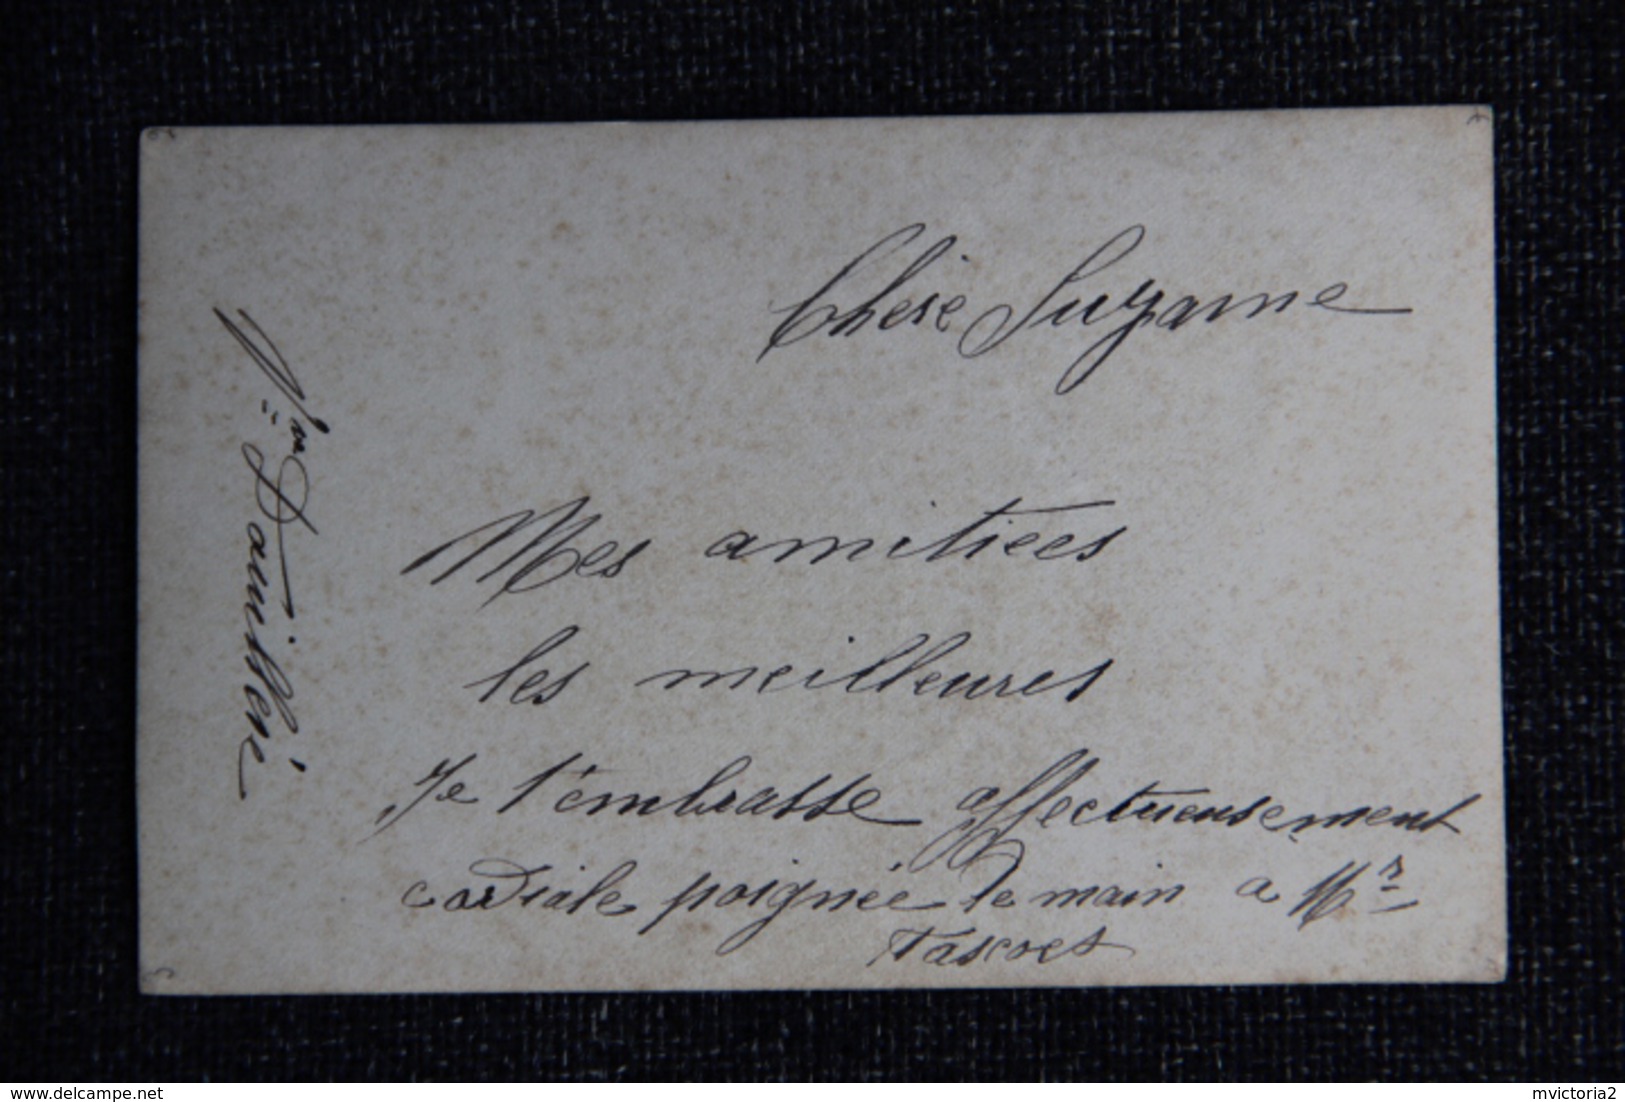 Chere Suzanne
Mes amitiées
les meilleures
Je t'embrasse affectueusement
cordiale poignée de main a Mr
Vve
delcampe.net
mvictoria2